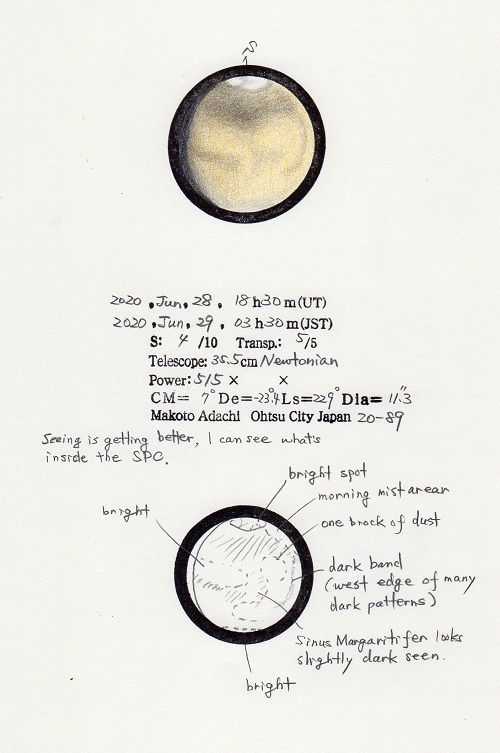 S
2020, Jun, 28, 18h30m(UT)
2020, Jun, 29, 03h30m(JST)
S: 4 /10 Transp.: 5/5
Telescope: 35.5cm Newtonian
Power: 515 × ×
CM= 7° De=-23.4 Ls=229° Dia= 11.3"
Makoto Adachi Ohtsu City Japan 20-89
Seeing is getting better, I can see what's
inside the SPC.
bright spot
morning mist arear
bright
one brock of dust
dark band
(west edge of many
dark patterns)
Sinus Margaritifer looks
slightly dark seen.
bright